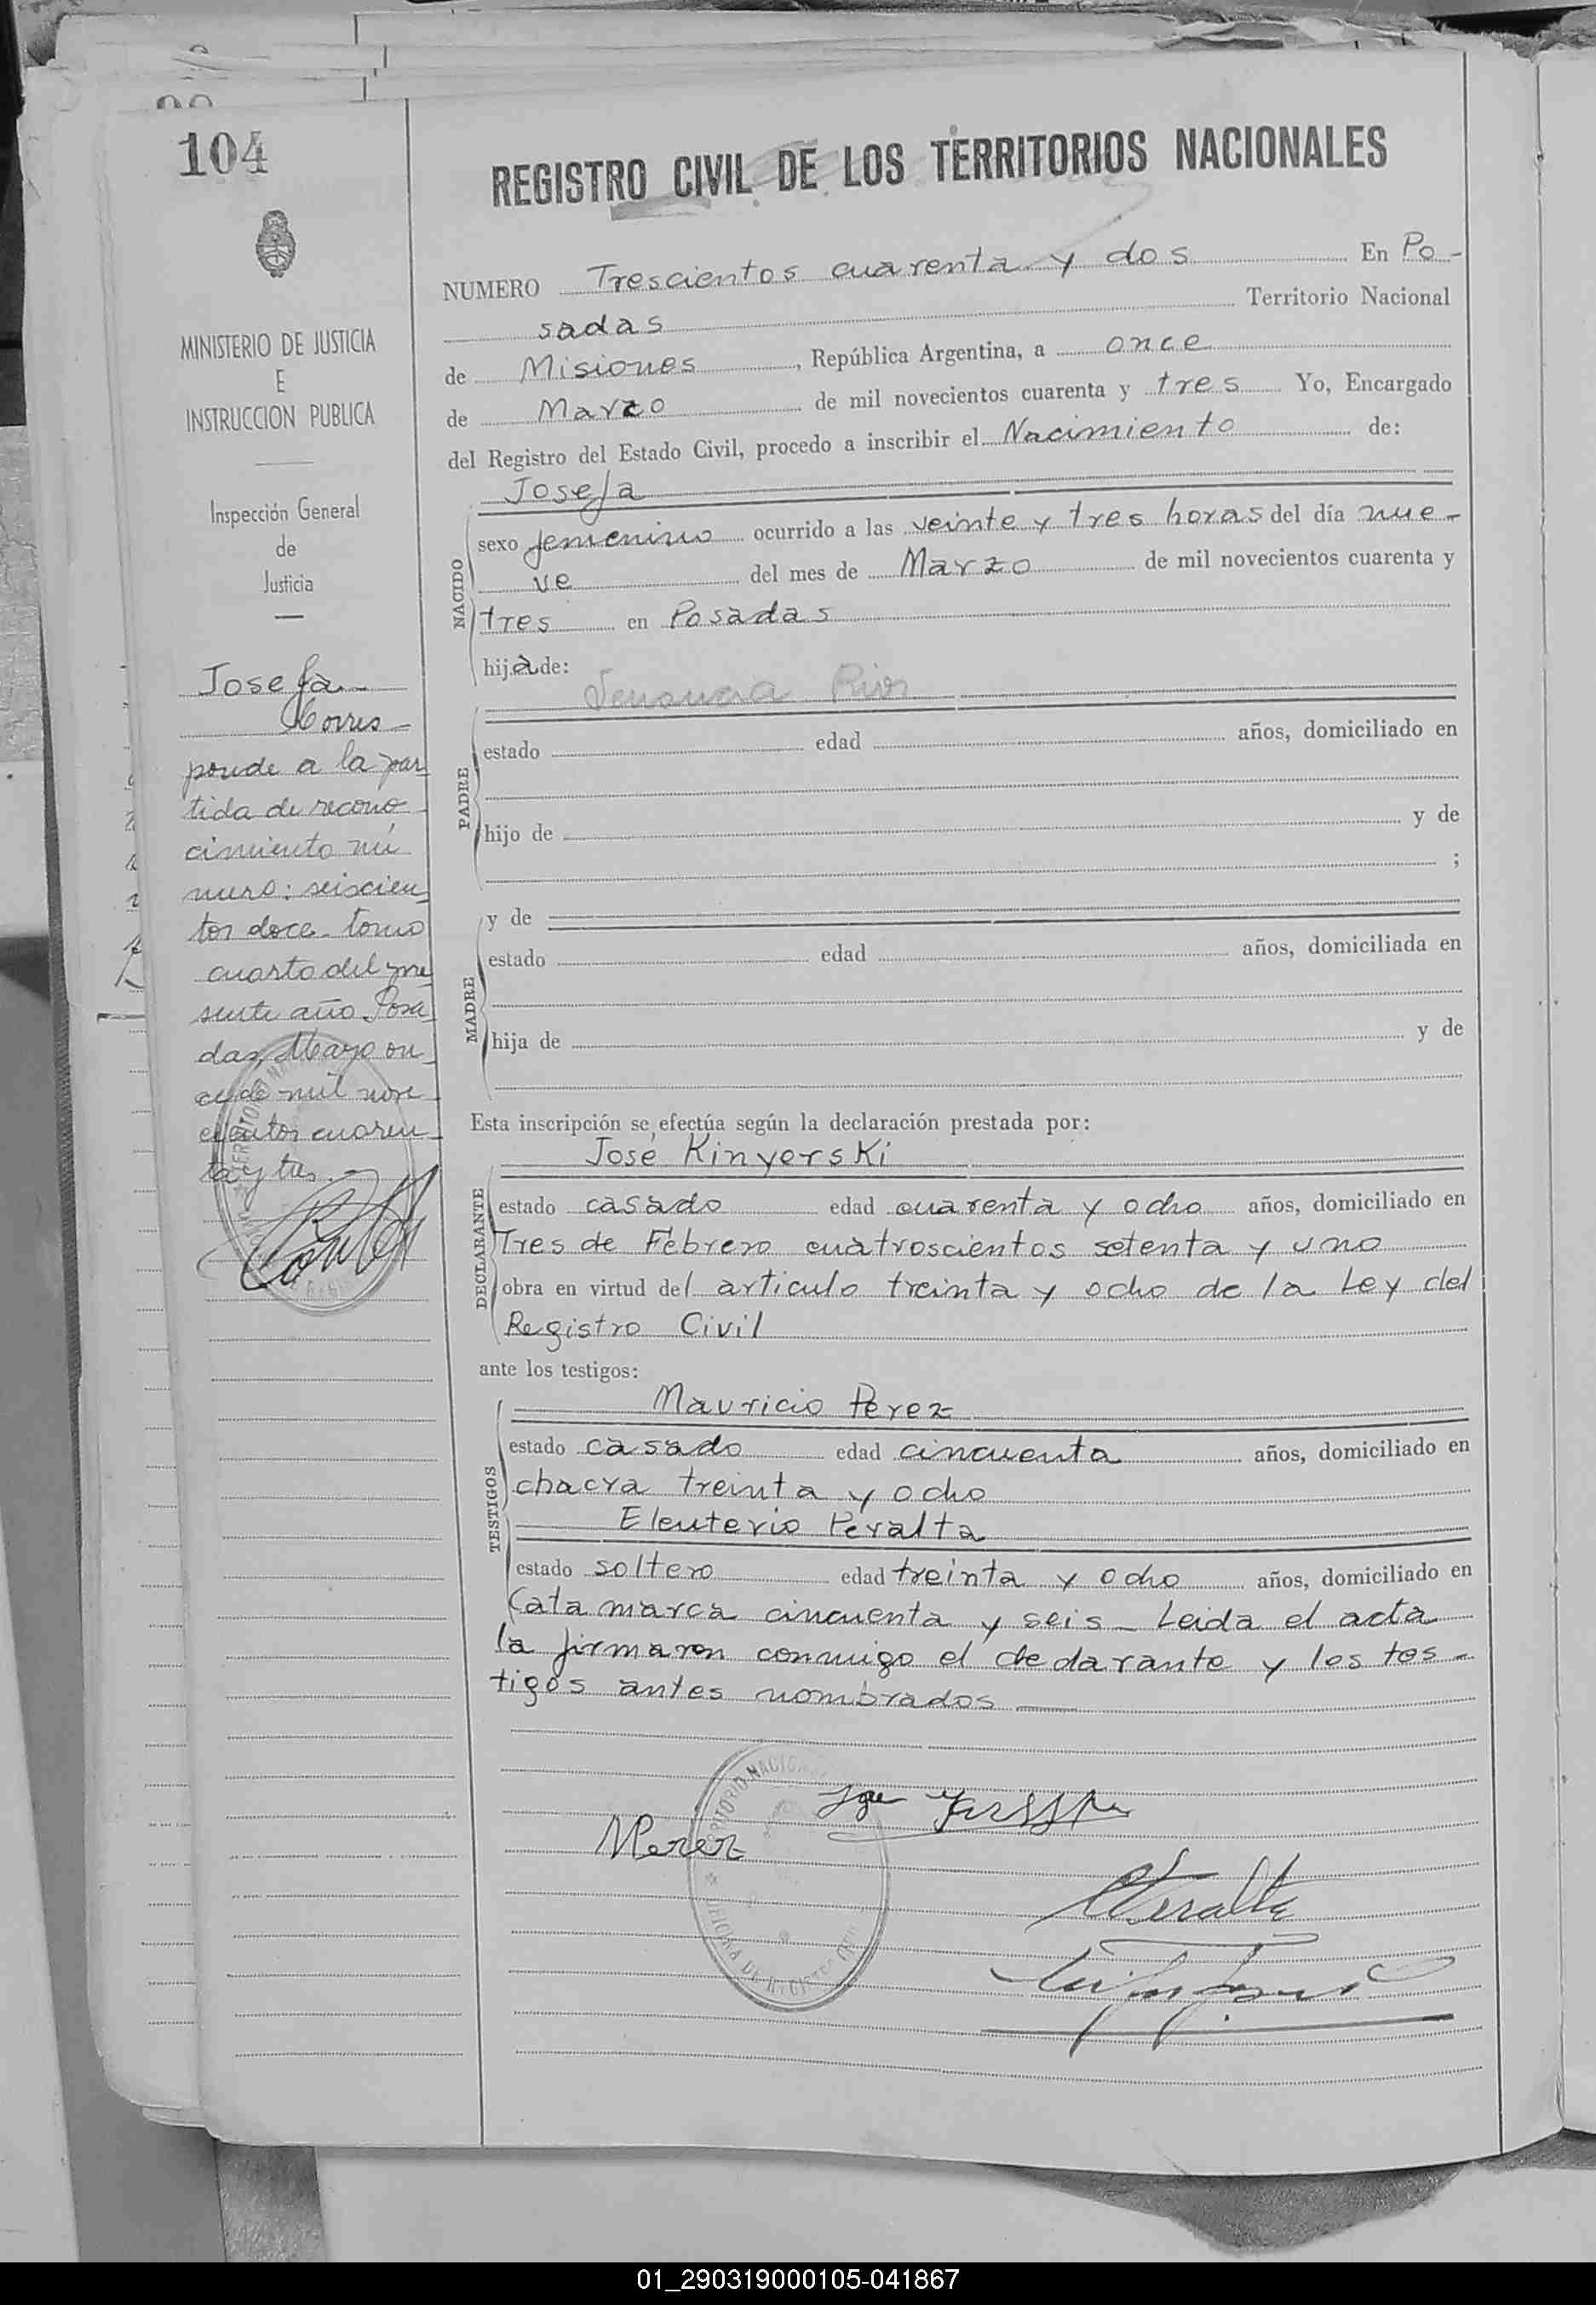 104
REGISTRO CIVIL DE LOS TERRITORIOS NACIONALES
MINISTERIO DE JUSTICIA
E
INSTRUCCION PUBLICA
Inspección General
de
Justicia
Josefa
Corres
ponde a la par
tida de recono
cimiento nú
mero: seiscien
tos doce tomo
cuarto del pre
sente año Posa
das, Mayo on
ce de mil nove
cientos cuaren
ta y tres.
NUMERO Trescientos cuarenta y dos En Po-
sadas Territorio Nacional
de Misiones, República Argentina, a once
de Marzo de mil novecientos cuarenta y tres Yo, Encargado
del Registro del Estado Civil, procedo a inscribir el Nacimiento de:
Josefa
NACIDO
sexo femenino ocurrido a las veinte y tres horas del día nue-
ve del mes de Marzo de mil novecientos cuarenta y
tres en Posadas
hija de:
PADRE
estado edad años, domiciliado en
hijo de y de
;
MADRE
y de
estado edad años, domiciliada en
hija de y de
Esta inscripción se efectúa según la declaración prestada por:
José Kinyerski
DECLARANTE
estado casado edad cuarenta y ocho años, domiciliado en
Tres de Febrero cuatroscientos setenta y uno
obra en virtud del articulo treinta y ocho de la Ley del
Registro Civil
ante los testigos:
Mauricio Perez
TESTIGOS
estado casado edad cincuenta años, domiciliado en
chacra treinta y ocho
Eleuterio Peralta
estado soltero edad treinta y ocho años, domiciliado en
Catamarca cincuenta y seis - Leida el acta
la firmaron conmigo el declarante y los tes-
tigos antes nombrados
MPerez
EPeralta
01_290319000105-041867